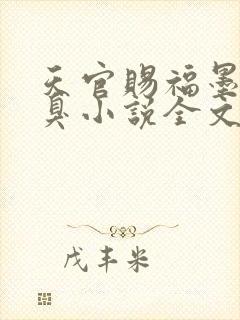 天官赐福墨
臭小说全文
戊丰米